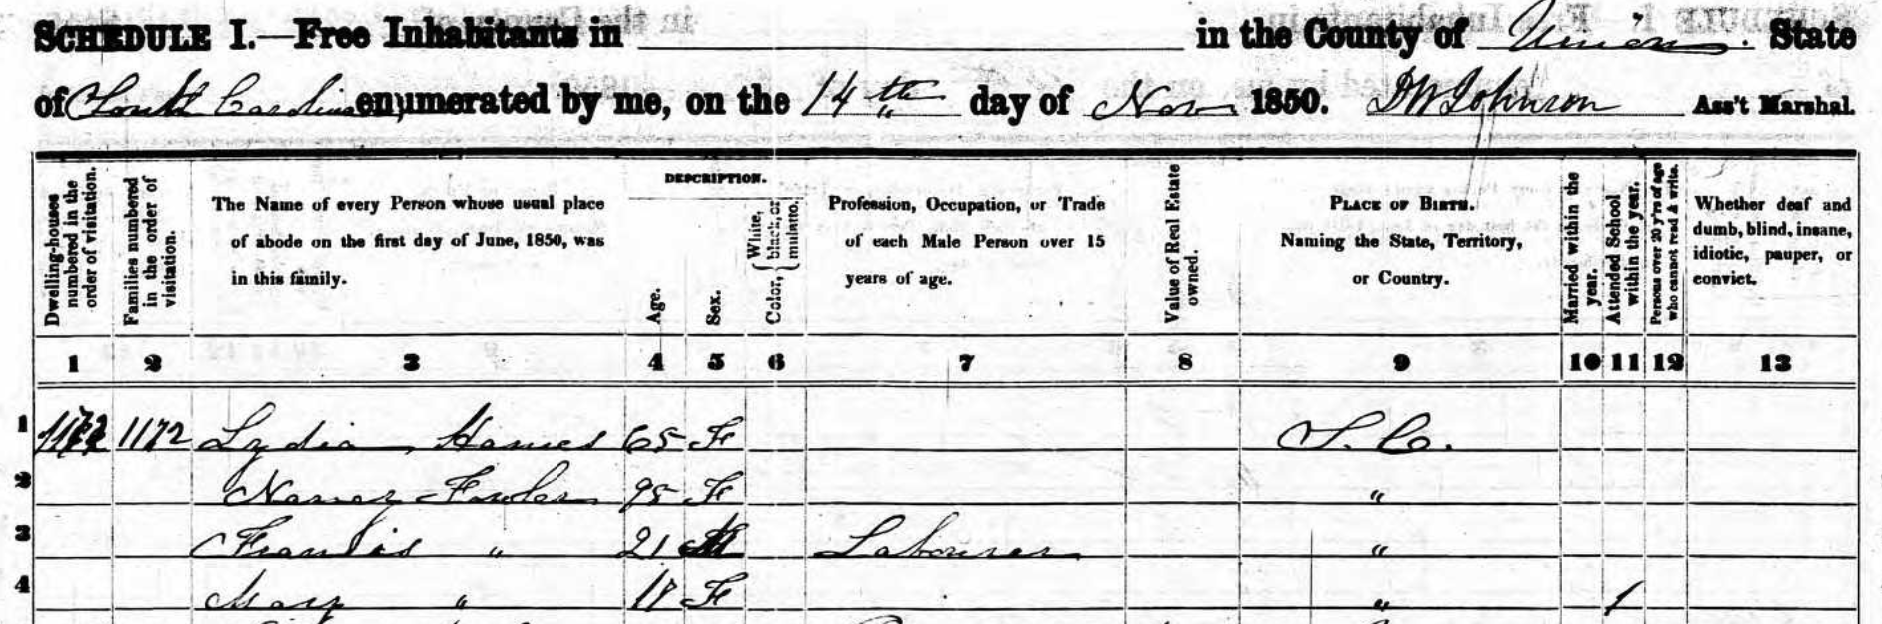 SCHEDULE I.—Free Inhabitants in in the County of Union. State
of South Carolina enumerated by me, on the 14th day of Nov 1850. DW Johnson Ass't Marshal.
Dwelling-houses numbered in the order of visitation.
Families numbered in the order of visitation.
The Name of every Person whose usual place
of abode on the first day of June, 1850, was
in this family.
DESCRIPTION.
Age.
Sex.
Color, { White, black, or mulatto.
Profession, Occupation, or Trade
of each Male Person over 15
years of age.
Value of Real Estate owned.
PLACE OF BIRTH.
Naming the State, Territory,
or Country.
Married within the year.
Attended School within the year.
Persons over 20 y'rs of age who cannot read & write.
Whether deaf and
dumb, blind, insane,
idiotic, pauper, or
convict.
1 2 3 4 5 6 7 8 9 10 11 12 13
1 1172 Lydia 65 F S. C.
2 Nancy Fowler F "
3 Francis " 21 M Labourer "
4 Mary " F " 1